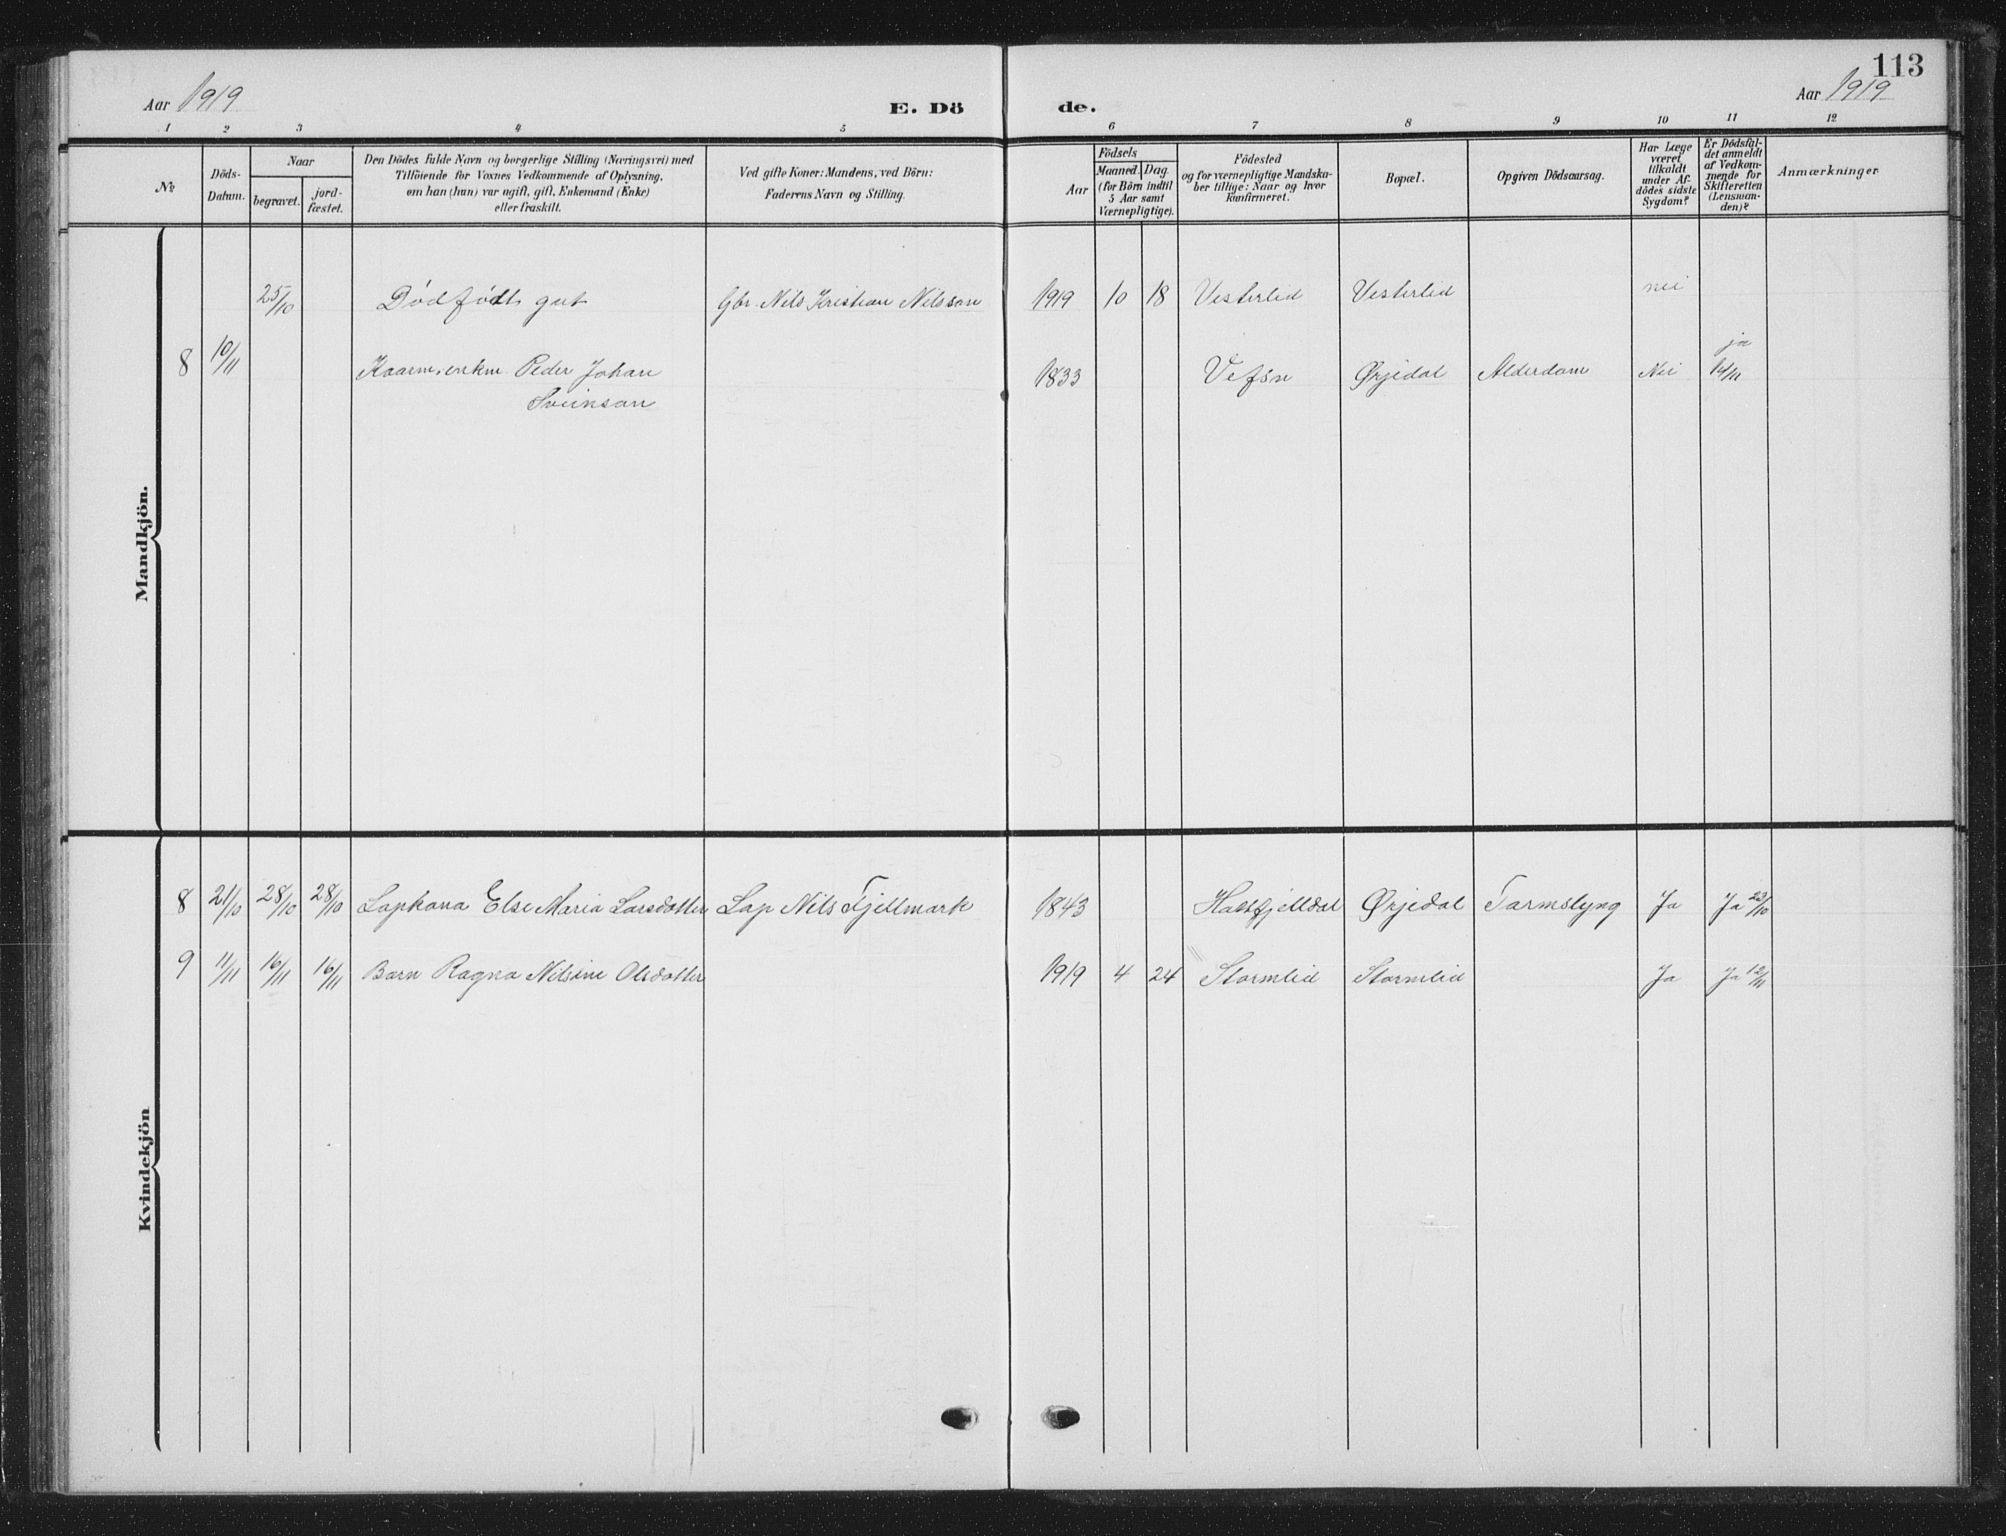 113
Aar 1919
E. Dö
de.
Aar 1919
1 2 3 4 5 6 7 8 9 10 11 12
№
Döds-
Datum.
Naar
begravet.
jord-
fæstet.
Den Dödes fulde Navn og borgerlige Stilling (Næringsvei) med
Tilföiende for Voxnes Vedkommende af Oplysning,
om han (hun) var ugift, gift, Enkemand (Enke)
eller fraskilt.
Ved gifte Koner: Mandens, ved Börn:
Faderens Navn og Stilling.
Aar
Födsels
Maaned. Dag
(for Börn indtil
5 Aar samt
Værnepligtige).
Födested
og for værnepligtige Mandska-
ber tillige: Naar og hvor
konfirmeret.
Bopæl.
Opgiven Dödsaarsag.
Har Læge
været
tilkaldt
under Af-
dödes sidste
Sygdom?
Er Dödsfal-
det anmeldt
af Vedkom-
mende for
Skifteretten
(Lensman-
den)?
Anmærkninger
Mandkjön.
25/10 Dødfødt gut Gbr. Nils Kristian Nilsson 1919 10 18 Vesterlid Vesterlid nei
8 10/11 Kaarm. enkm. Peder Johan 1833 Vefsn Ørjedal Alderdom Nei ja 14/11
Sveinson
Kvindekjön
8 21/10 28/10 28/10 Lapkona Else Maria Larsdotter Lap Nils Fjellmark 1843 Hatfjelldal Ørjedal Tarmslyng Ja Ja 23/10
9 11/11 16/11 16/11 Barn Ragna Nilsine Olsdotter 1919 4 24 Stormlid Stormlid Ja Ja 12/11